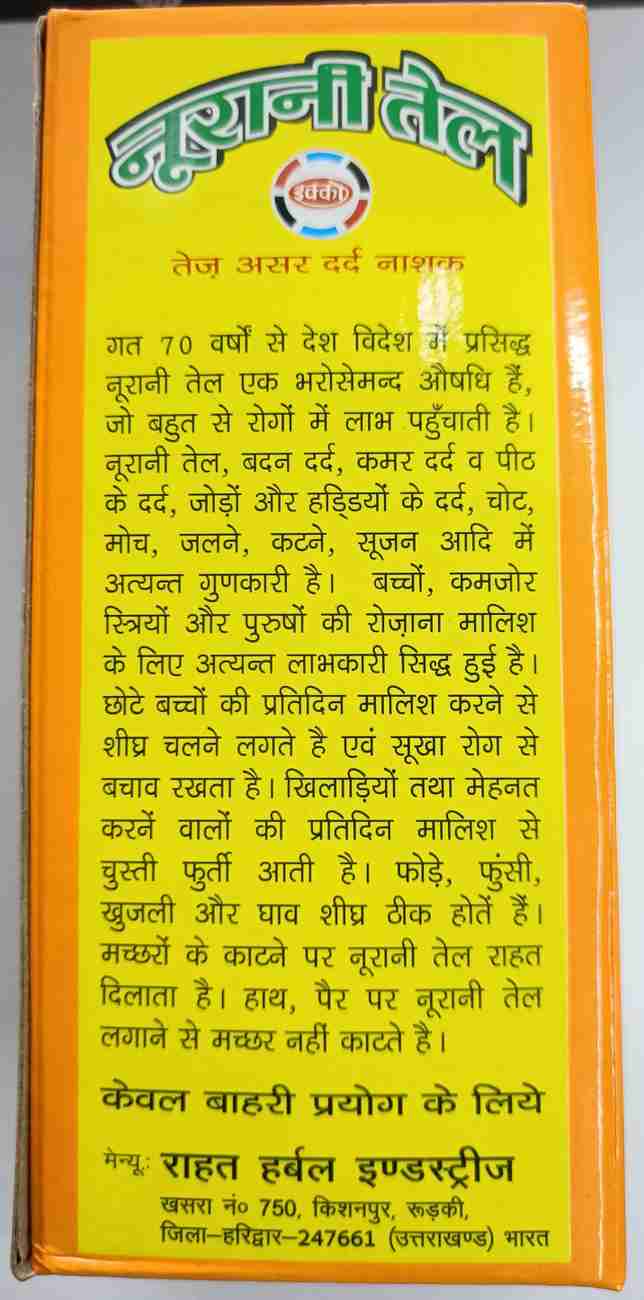 नूरानी तेल
इक्को
तेज़ असर दर्द नाशक
गत 70 वर्षों से देश विदेश में प्रसिद्ध
नूरानी तेल एक भरोसेमन्द औषधि हैं,
जो बहुत से रोगों में लाभ पहुँचाती है।
नूरानी तेल, बदन दर्द, कमर दर्द व पीठ
के दर्द, जोड़ों और हड्डियों के दर्द, चोट,
मोच, जलने, कटने, सूजन आदि में
अत्यन्त गुणकारी है। बच्चों, कमजोर
स्त्रियों और पुरुषों की रोज़ाना मालिश
के लिए अत्यन्त लाभकारी सिद्ध हुई है।
छोटे बच्चों की प्रतिदिन मालिश करने से
शीघ्र चलने लगते है एवं सूखा रोग से
बचाव रखता है। खिलाड़ियों तथा मेहनत
करनें वालों की प्रतिदिन मालिश से
चुस्ती फुर्ती आती है। फोड़े, फुंसी,
खुजली और घाव शीघ्र ठीक होतें हैं।
मच्छरों के काटने पर नूरानी तेल राहत
दिलाता है। हाथ, पैर पर नूरानी तेल
लगाने से मच्छर नहीं काटते है।
केवल बाहरी प्रयोग के लिये
मेन्यू: राहत हर्बल इण्डस्ट्रीज
खसरा नं० 750, किशनपुर, रूड़की,
जिला-हरिद्वार-247661 (उत्तराखण्ड) भारत